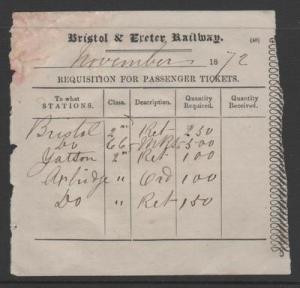 Bristol & Exeter Railway. (48)
November 1872
REQUISITION FOR PASSENGER TICKETS.
To what STATIONS. Class. Description. Quantity Required. Quantity Received.
Bristol 2nd Ret 250
Do 500
Yatton 2nd Ret 100
Axbridge " Ord 100
Do " Ret 150